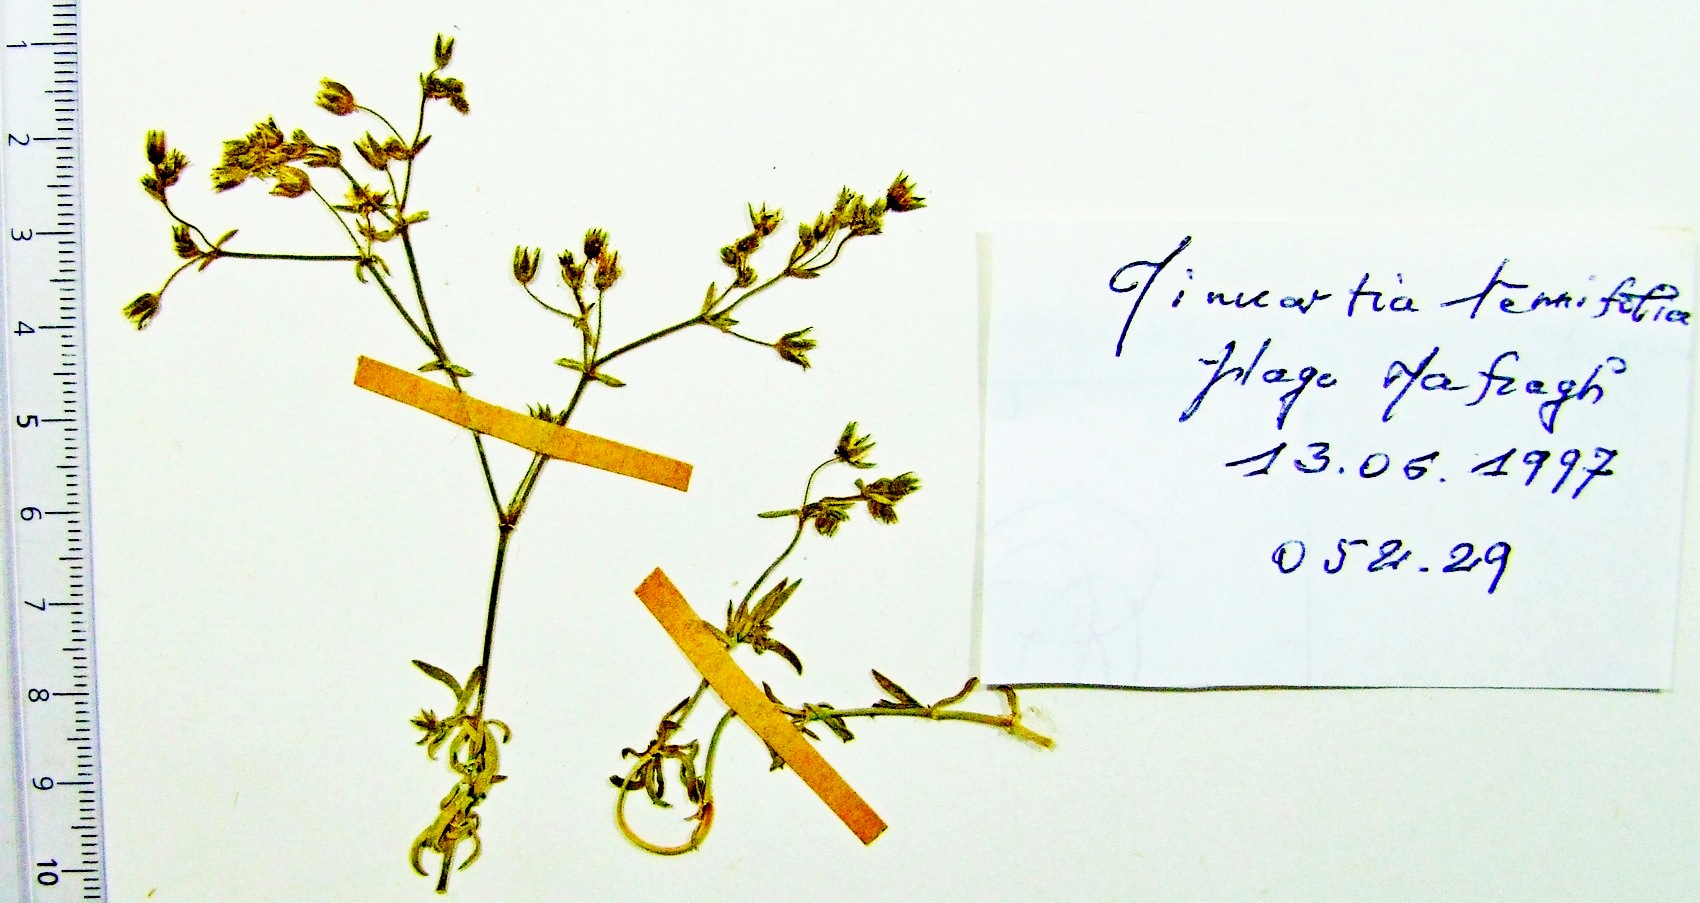 1
2
3
4
5
6
7
8
9
10
Minuartia tenuifolia
plage Mafragh
13.06.1997
052.29